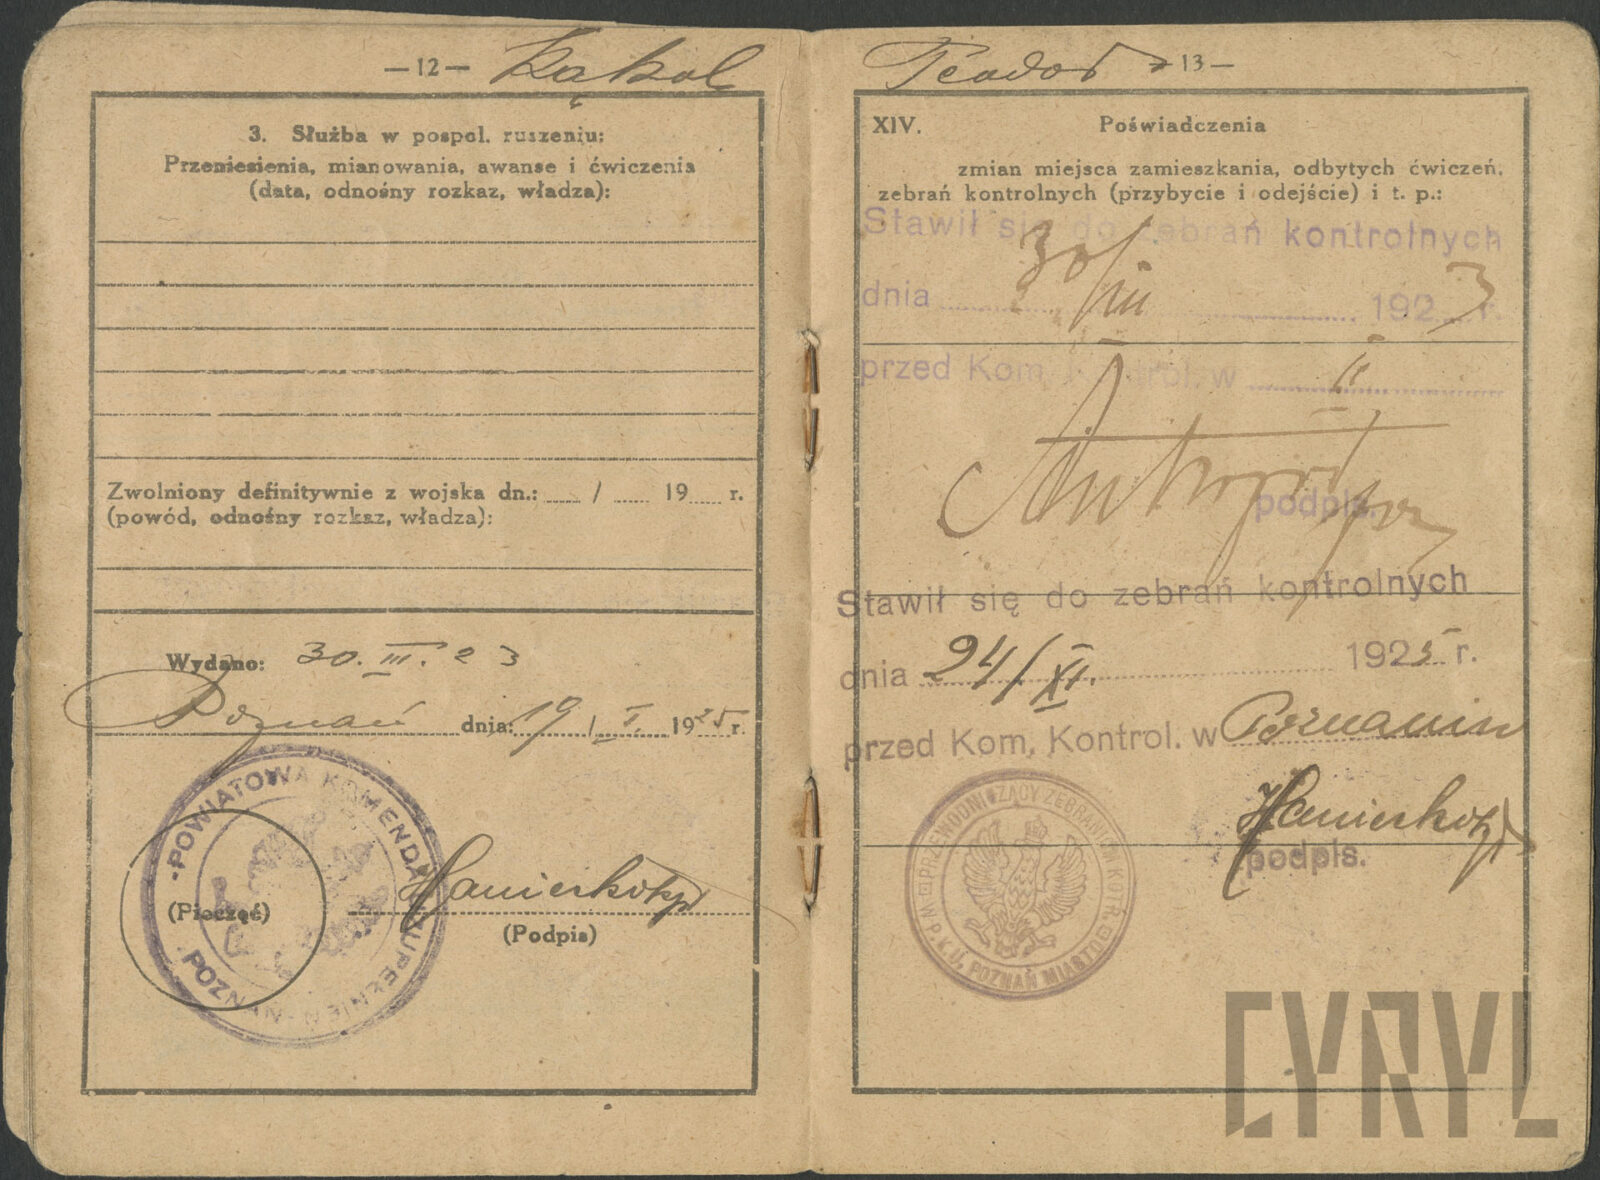 —12— Kąkol
3. Służba w pospol. ruszeniu:
Przeniesienia, mianowania, awanse i ćwiczenia
(data, odnośny rozkaz, władza):
Zwolniony definitywnie z wojska dn.: / 19 r.
(powód, odnośny rozkaz, władza):
Wydano: 30. III. 23
Poznań dnia: 19 / I. 1925 r.
-POWIATOWA KOMENDA UZUPEŁNIEŃ POZNAŃ
(Pieczęć)
(Podpis)
Teodor 13—
XIV. Poświadczenia
zmian miejsca zamieszkania, odbytych ćwiczeń,
zebrań kontrolnych (przybycie i odejście) i t. p.:
Stawił się do zebrań kontrolnych
dnia 30/III 1923 r.
przed Kom. Kontrol. w II
podpis.
Stawił się do zebrań kontrolnych
dnia 24/XI. 1925 r.
przed Kom. Kontrol. w Poznaniu
podpis.
PRZEWODNICZĄCY ZEBRANIOM KOTR. W P.K.U. POZNAŃ MIASTO
CYRYL